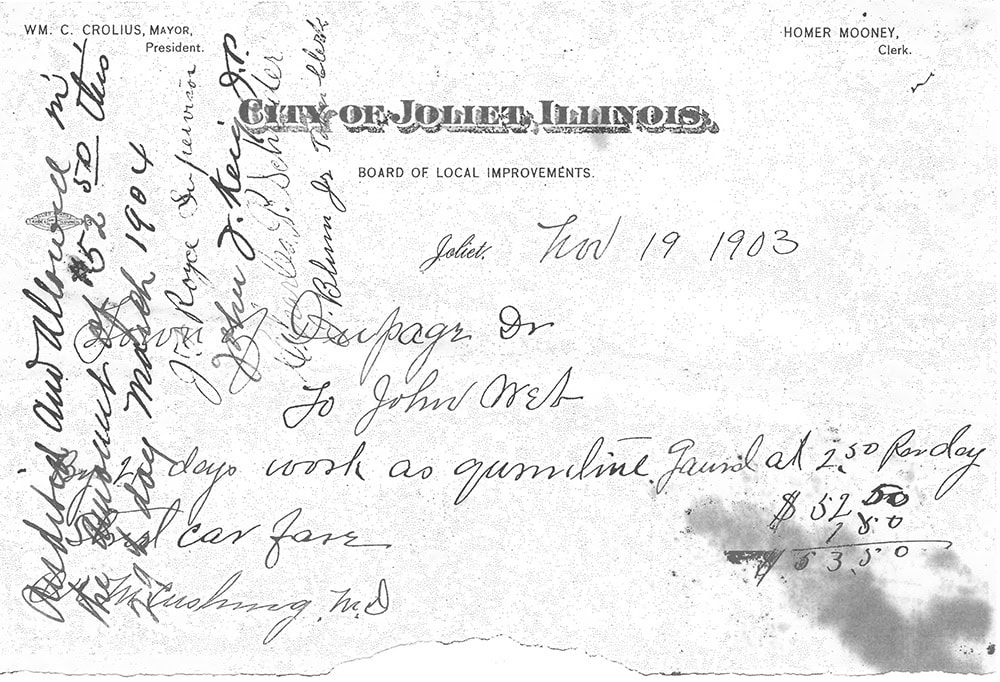 WM. C. CROLIUS, MAYOR,
President.
HOMER MOONEY,
Clerk.
CITY OF JOLIET, ILLINOIS.
BOARD OF LOCAL IMPROVEMENTS.
Joliet, Nov 19 1903
Town of Dupage Dr
To John Web
By 21 days work as qurniline Gaurd at 2.50 Per day
$ 52 50
Street car fare 1 50
$ 53.50
M Cushing, M.D
Audited and Allowed in
the Amount of $52 50 this
day March 1904
Jno Royce Supervisor
John J. Keig J.P.
Charles P.
Blum Jr Town clerk